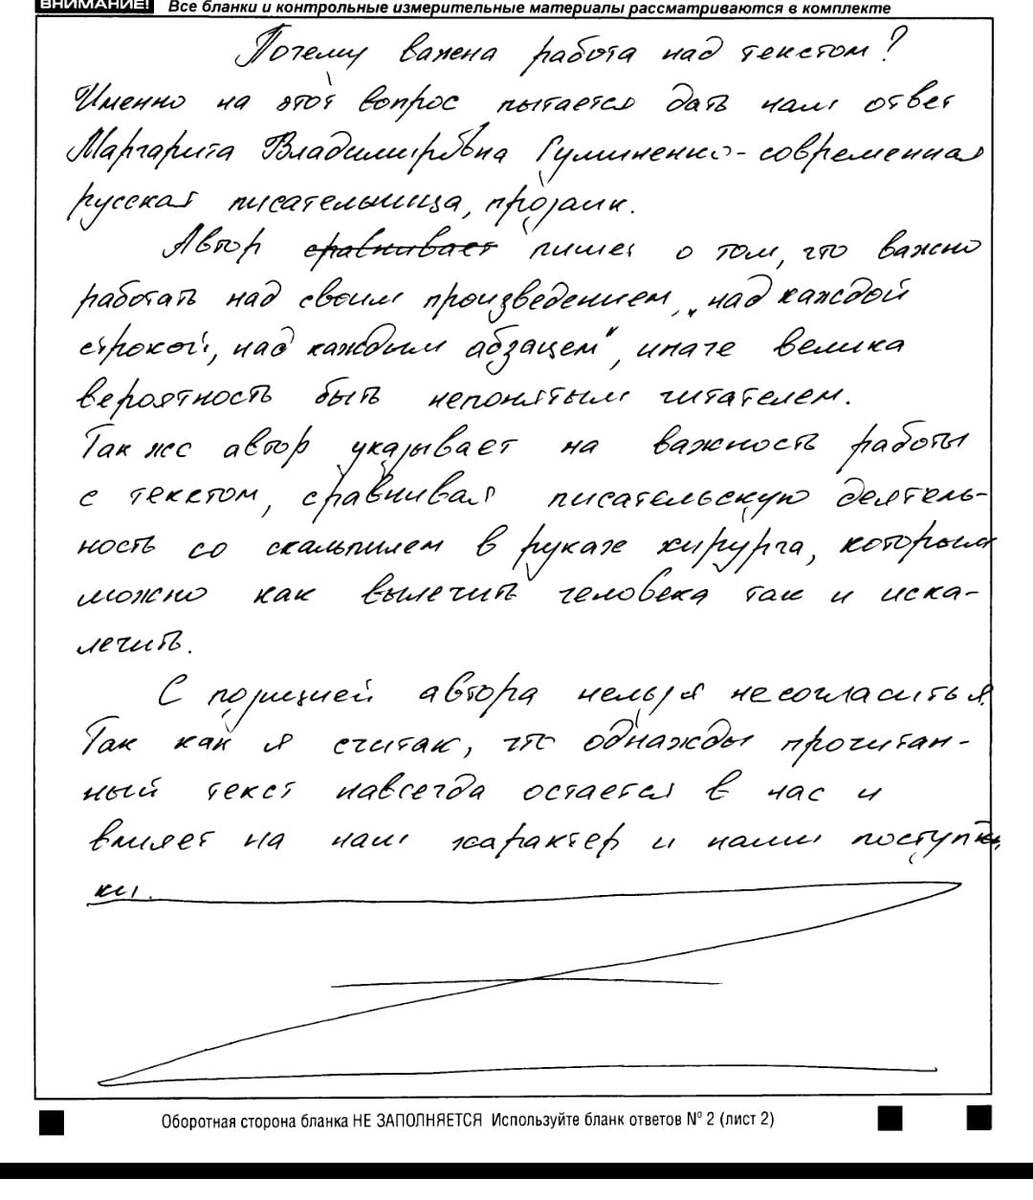 ВНИМАНИЕ! Все бланки и контрольные измерительные материалы рассматриваются в комплекте
Почему важена работа над текстом?
Именно на этот вопрос пытается дать нам ответ
Маргарита Владимировна Гумineнко - современная
русская писательница, прозаик.
Автор сравнивает пишет о том, что важно
работать над своим произведением, „над каждой
строкой, над каждым абзацем", иначе велика
вероятность быть непонятым читателем.
Так же автор указывает на важность работы
с текстом, сравнивая писательскую деятель-
ность со скальпилем в руках хирурга, которым
можно как вылечить человека так и иска-
лечить.
С позицией автора нельзя несогласиться.
Так как я считаю, что однажды прочитан-
ный текст навсегда остается в нас и
влияет на наш характер и наши поступ
ки.
Оборотная сторона бланка НЕ ЗАПОЛНЯЕТСЯ Используйте бланк ответов № 2 (лист 2)